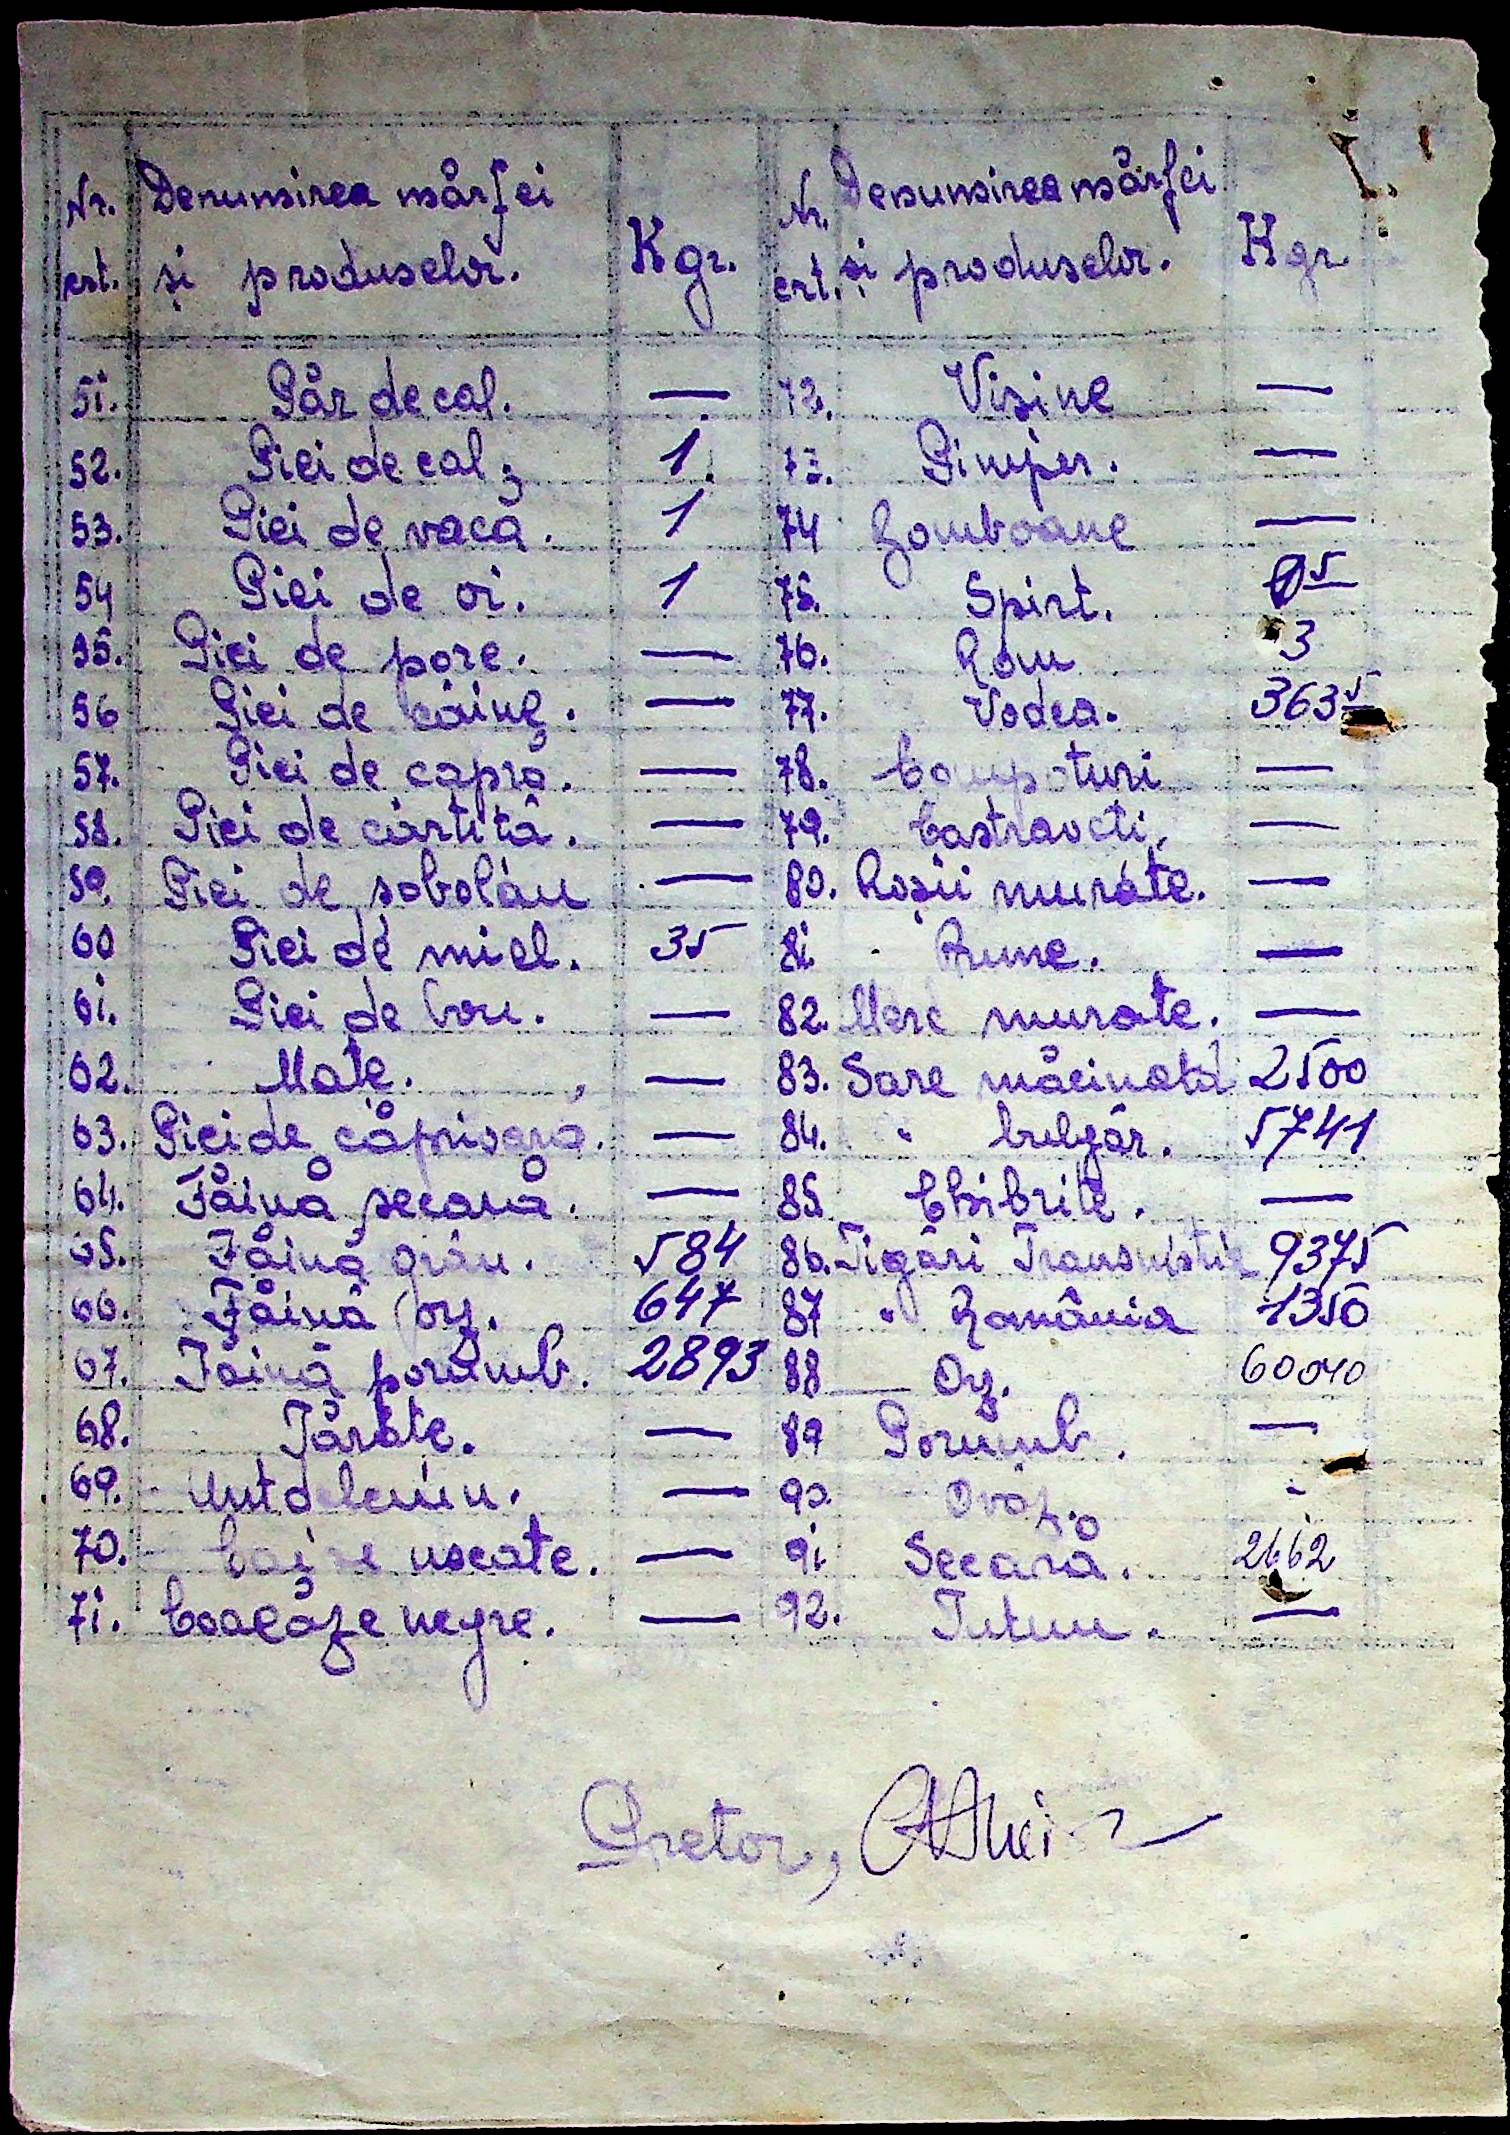 Nr. crt. Denumirea mărfei și produselor. Kgr. Nr. crt. Denumirea mărfei și produselor. Kgr
51. Păr de cal. — 72. Vișine —
52. Piei de cal. 1. 73. Pimper. —
53. Piei de vacă. 1 74 Bomboane —
54 Piei de oi. 1 75. Spirt.
55. Piei de porc. — 76. Rom 3
56 Piei de câine. — 77. Vodca. 363 5
57. Piei de capră. — 78. Compoturi —
58. Piei de cârtiță. — 79. Castraveti. —
59. Piei de șobolan — 80. Roșii murate. —
60 Piei de miel. 35 81 Prune. —
61. Piei de bou. — 82. Mere murate. —
62. Mațe. — 83. Sare măcinată 2500
63. Piei de căprioară. — 84. " bulgăr. 5741
64. Făină secară. — 85. Chibrite. —
65. Făină grâu. 584 86. Tigări Transnistria 9375
66. Făină orz. 647 87 " România 1350
67. Făină porumb. 2893 88 — Orz. 60040
68. Tărâțe. — 89 Porumb. —
69. Untdelemn. — 90. Ovăz. -
70. Caise uscate. — 91 Secară. 2662
71. Coacăze negre. — 92. Tutun. —
Pretor,